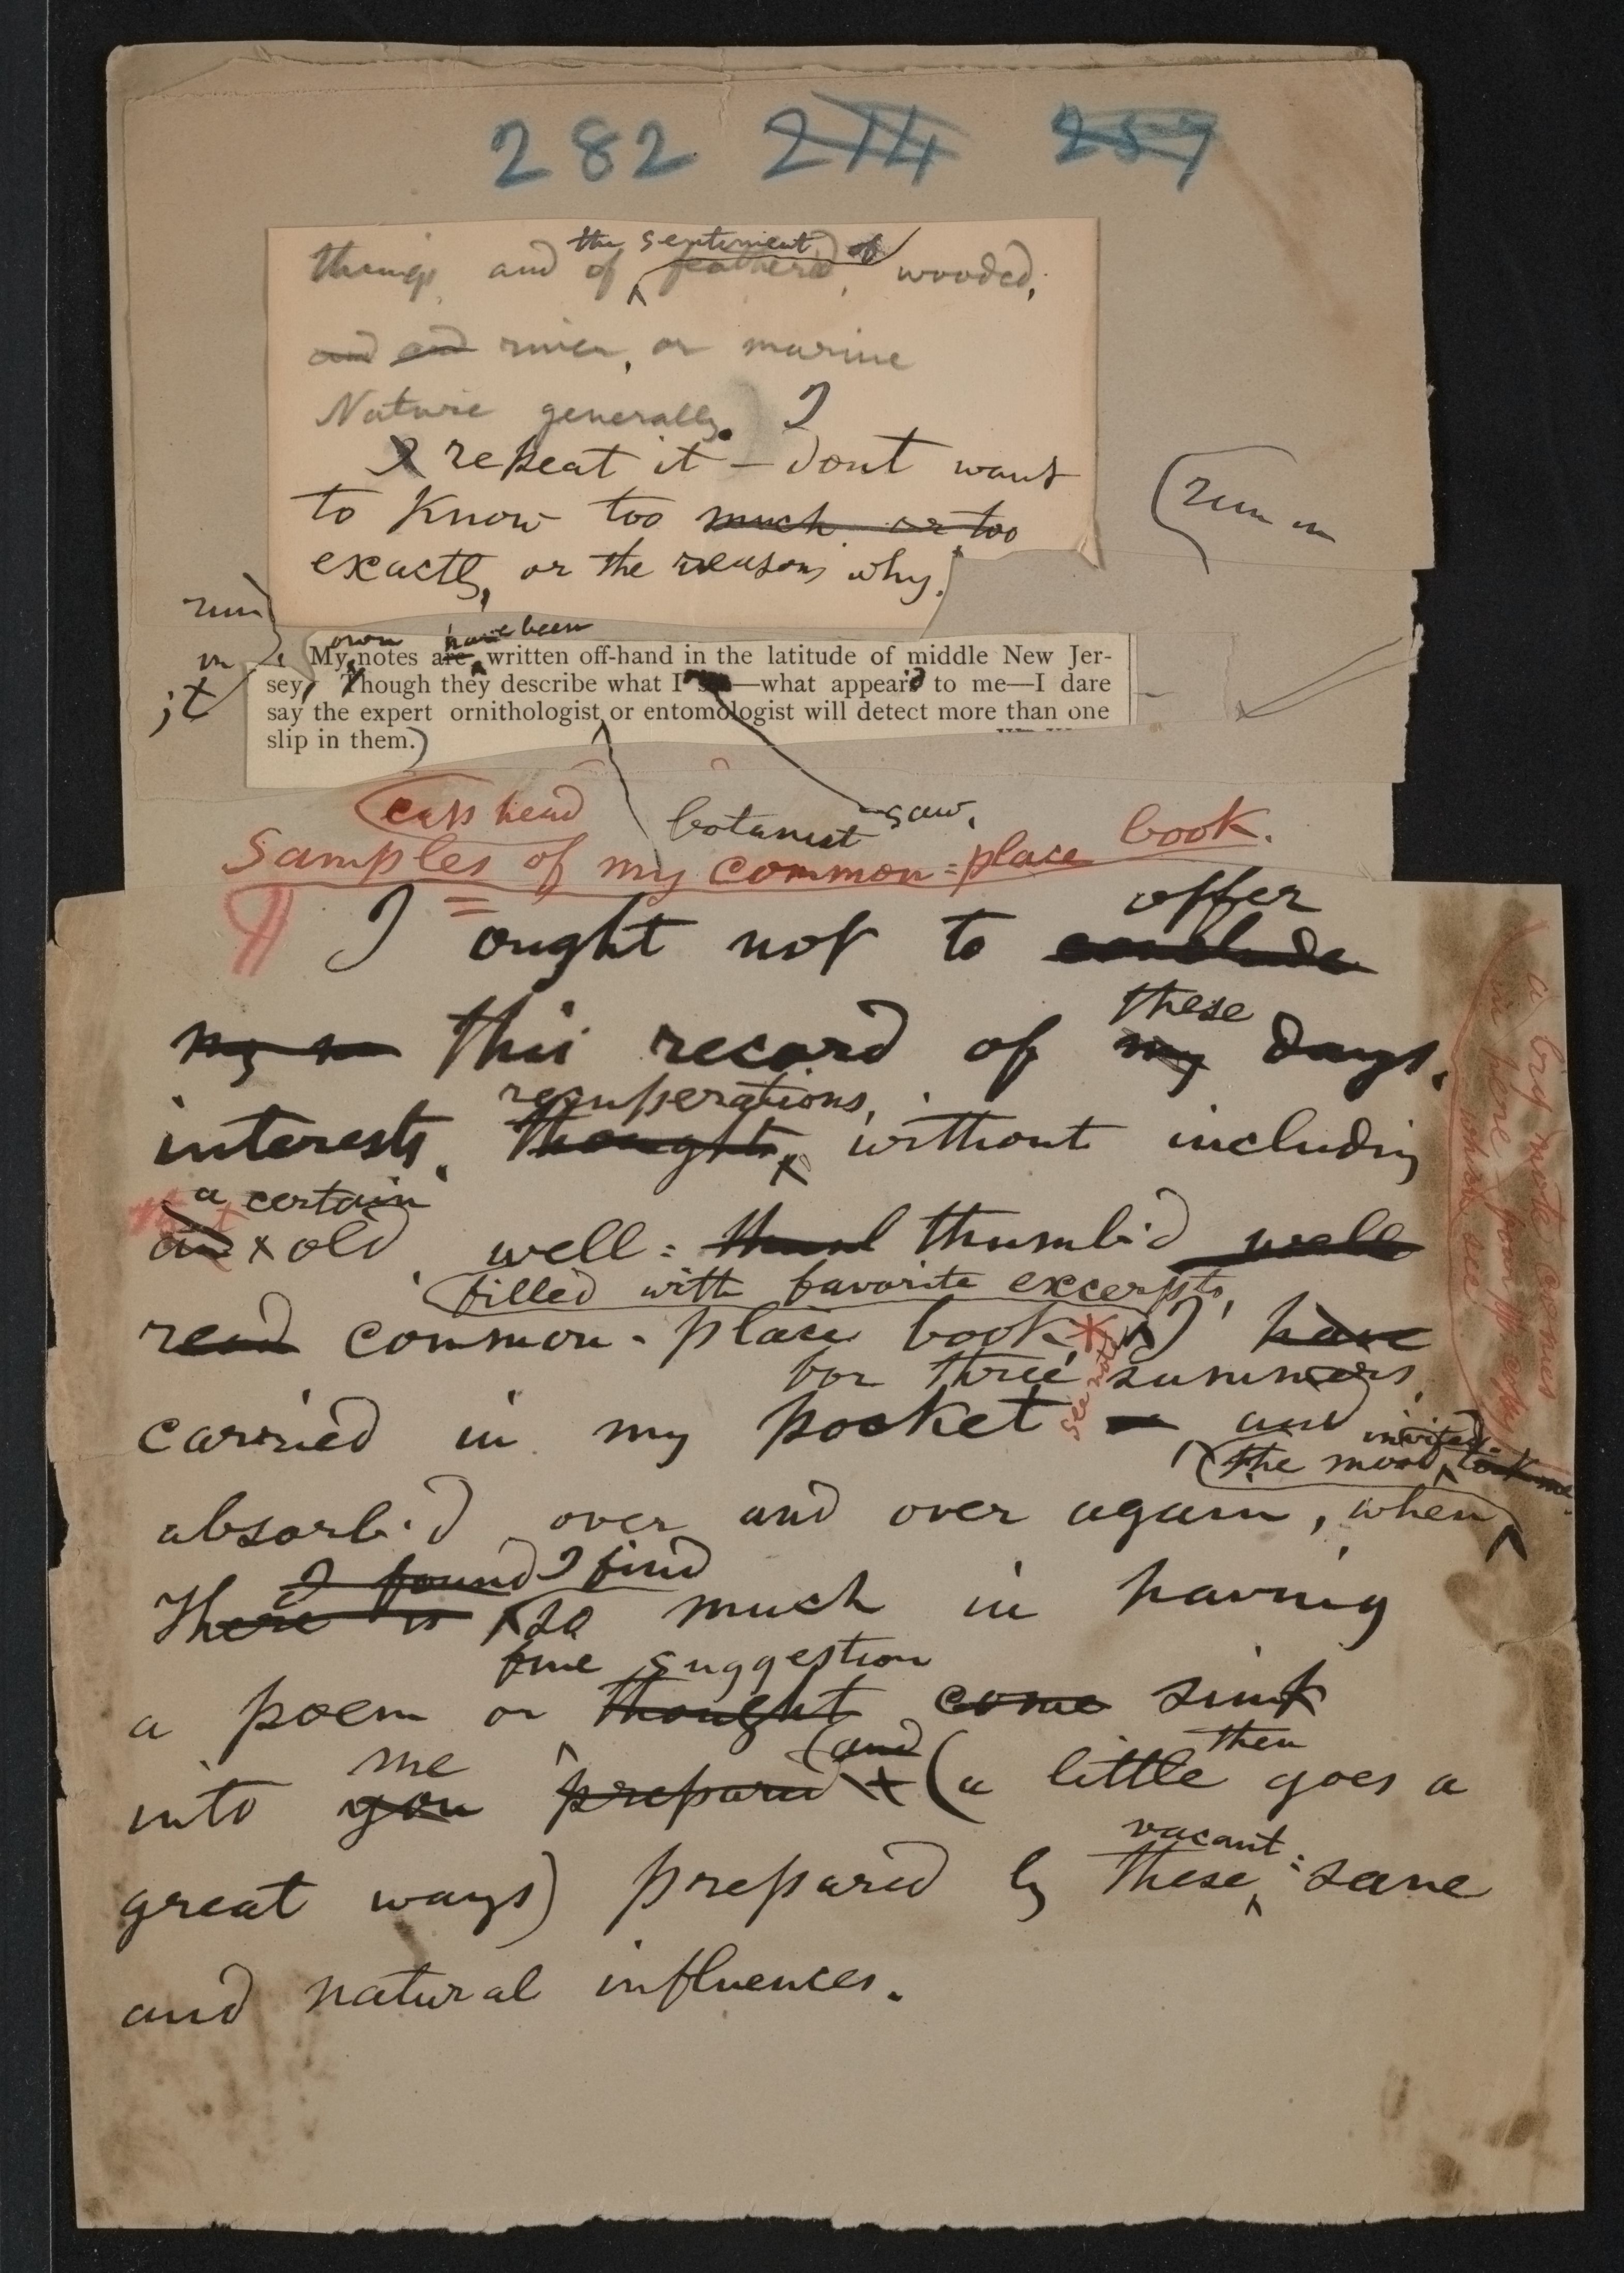 282 274 257
the sentiment of
things, and of feather'd, wooded,
and and river, or marine
Nature generally. I
I repeat it — don't want
to know too much or too
exactly, or the reasons why.
run in
run
in
it
own have been
My notes are written off-hand in the latitude of middle New Jer-
sey, Though they describe what I —what appear'd to me—I dare
say the expert ornithologist or entomologist will detect more than one
slip in them.)
caps head
botanist saw.
Samples of my common-place book.
offer
I ought not to conclude
these
my this record of my days,
recuperations,
interests, thoughts, without including
a certain
an old, well-thumb'd well
filled with favorite excerpts,
read common-place book I have
see note
for three summers,
carried in my pocket and
invited.
the mood took me
absorb'd over and over again, when
I found I find
There is so much in having
fine suggestion
a poem or thought come sink
me and then
into you prepared (a little goes a
vacant-
great ways) prepared by these sane
and natural influences.
a big note comes
in here from pp copy
which see